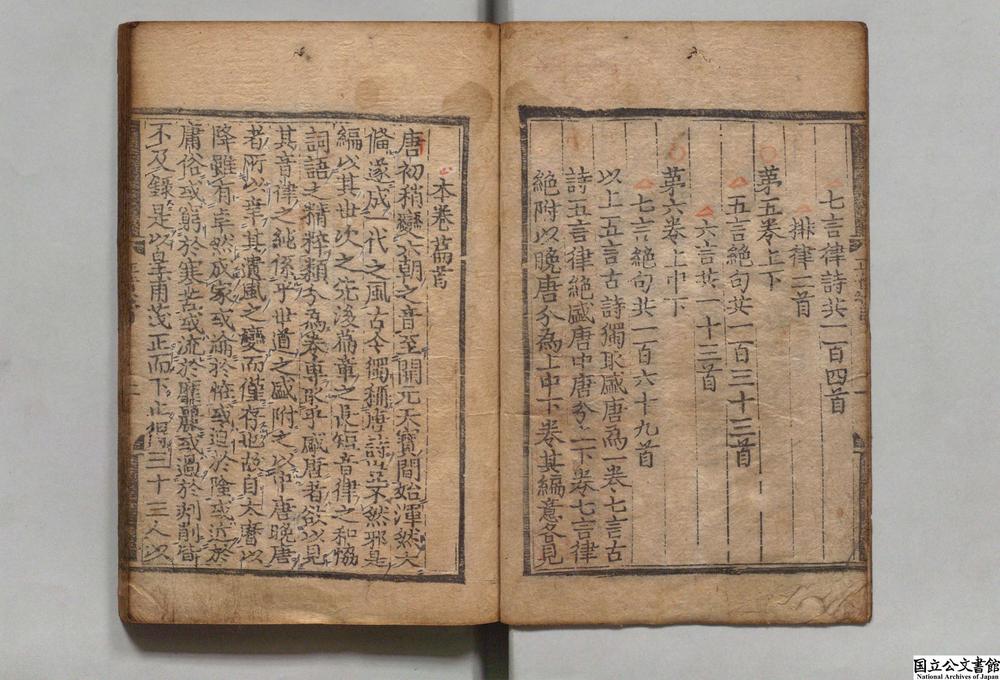 七言律詩共一百四首
排律二首
第五卷上下
五言絕句共一百三十三首
六言共一十三首
第六卷上中下
七言絕句共一百六十九首
以上五言古詩獨取盛唐為一卷七言古
詩五言律絕盛唐中唐分上下卷七言律
絕附以晚唐分為上中下卷其編意各見
本卷篇首
唐初稍變六朝之音至開元天寶間始渾然大
備遂成一代之風古今獨稱唐詩豈不然邪是
編以其世次之先後篇章之長短音律之和協
詞語之精粹類分為卷專取乎盛唐者欲以見
其音律之純係乎世道之盛附之以中唐晚唐
者所以幸其遺風之變而僅存也故自大曆以
降雖有卓然成家或淪於怪或迫於險或近於
庸俗或窮於寒苦或流於靡麗或過於刻削皆
不及錄是以皇甫茂正而下止得三十三人以
国立公文書館
National Archives of Japan